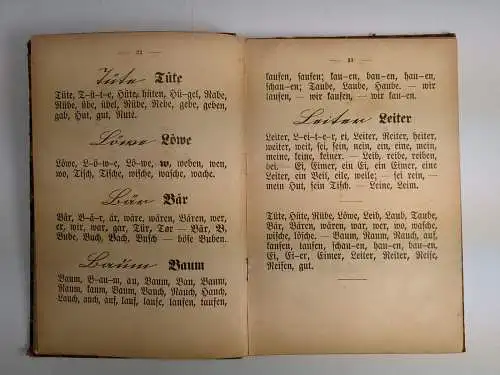 — 22 —
Tüte Tüte
Tüte, T-ü-t-e, Hüte, hüten, Hü-gel, Rabe,
Rübe, übe, übel, Rübe, Rebe, gebe, geben,
gab, Hut, gut, Rute.
Löwe Löwe
Löwe, L-ö-w-e, Lö-we, w, weben, wen,
wo, Tisch, Tische, wische, wasche, wache.
Bär Bär
Bär, B-ä-r, är, wäre, wären, Bären, wer,
er, wir, war, gar, Tür, Tor — Bär, B,
Bube, Buch, Bach, Busch — böse Buben.
Baum Baum
Baum, B-au-m, au, Baum, Bau, Baum,
Raum, kaum, Baum, Bauch, Rauch, Hauch,
Lauch, auch, auf, lauf, laufe, laufen, taufen,
— 23 —
kaufen, saufen; kau-en, bau-en, hau-en,
schau-en; Taube, Laube, Haube. — wir
laufen, — wir kaufen, — wir kau-en.
Leiter Leiter
Leiter, L-ei-t-e-r, ei, Leiter, Reiter, heiter,
weiter, weit, sei, sein, nein, ein, eine, mein,
meine, keine, keiner. — Leib, reibe, reiben,
bei. — Ei, Eimer, ein Ei, ein Eimer, eine
Leiter, ein Beil, eile, weile; — sei rein, —
mein Hut, sein Tisch. — Leine, Leim.
Tüte, Hüte, Rübe, Löwe, Leib, Laub, Taube,
Bär, Bären, wären, war, wer, wo, wasche,
wische, lösche. — Baum, Raum, Rauch, auf,
kaufen, laufen, schau-en, hau-en, bau-en,
Ei, Ei-er, Eimer, Leiter, Reiter, Reise,
Reisen, gut.